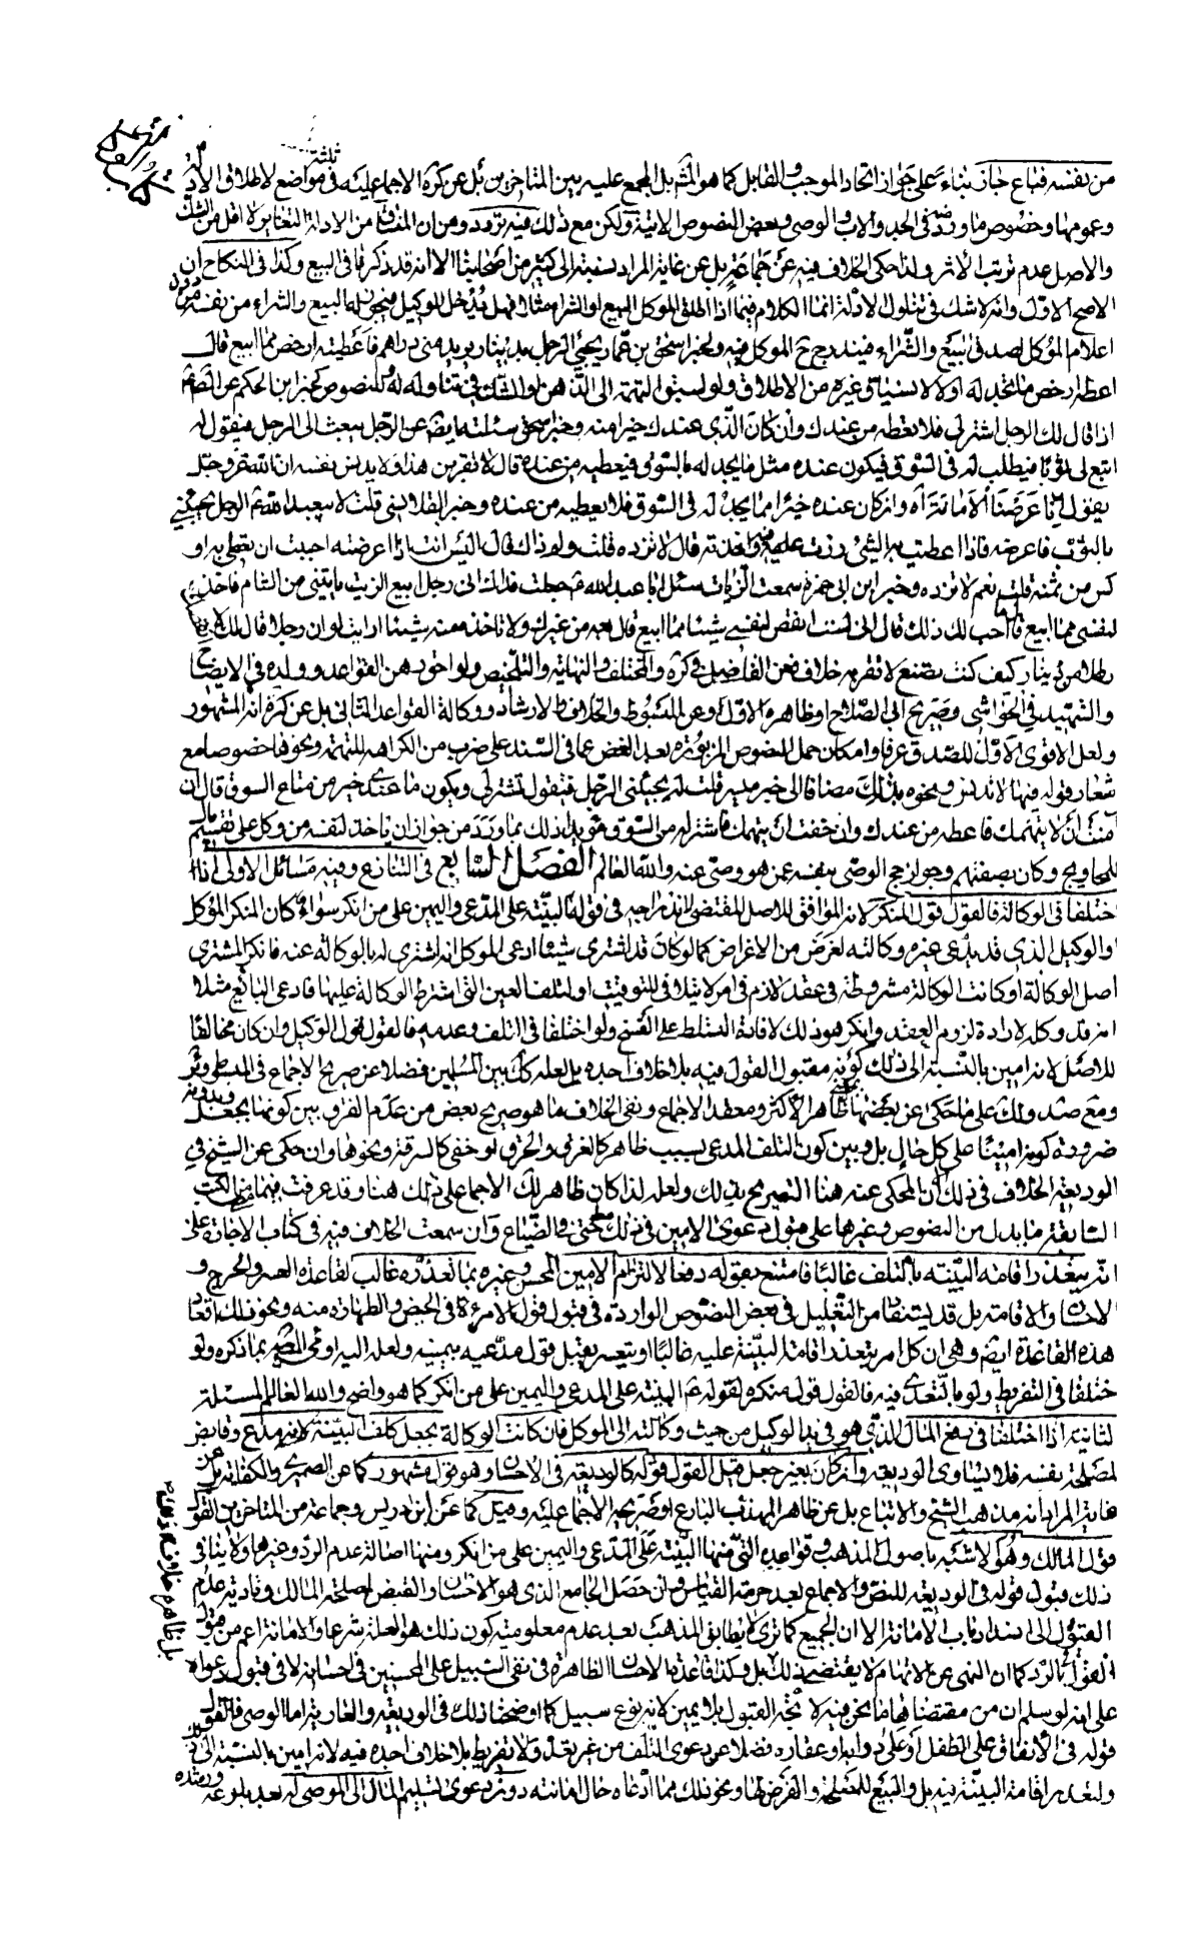 من نفسه فباع جاز بناء على جواز اتحاد الموجب والقابل كما هو المشهور بل المجمع عليه بين المتأخرين بل عن كره الاجماع عليه في مواضع ثلثة لاطلاق الادلة
وعمومها وخصوص ما ورد في الجد والاب والوصي وبعض النصوص الاتية ولكن مع ذلك فيه تردد ومن ان من الادلة التغاير لا اقل من الشك
والاصل عدم ترتب الاثر ولذا حكى الخلاف فيه عن جماعة بل عن غاية المراد نسبته الى كثير من اصحابنا الا انه قد ذكرنا في البيع وكذا في النكاح ان
الاصح الاول وانه لا شك في تناول الادلة انما الكلام فيما اذا اطلق الموكل البيع او الشراء مثلا فهل يدخل الوكيل فيجوز له البيع والشراء من نفسه من دون
اعلام الموكل لصدق البيع والشراء فيندرج ح الموكل فيه ولخبر اسحق بن عمار يجيئني الرجل بدينار يريد مني دراهم فاعطيته ارخص مما ابيع قال
اعطه ارخص مما تجد له او لا لانسياق غيره من الاطلاق ولو لسبق التهمة الى الذهن او الشك في تناوله له وللنصوص كخبر ابن الحكم عن الصادق
اذا قال لك الرجل اشتر لي فلا تعطه من عندك وان كان الذي عندك خيرا منه وخبر اسحق سئلته ايضا عن الرجل يبعث الى الرجل فيقول له
ابتع لي ثوبا فيطلب له في السوق فيكون عنده مثل ما يجد له في السوق فيعطيه من عنده قال لا تقربن هذا ولا يدنس نفسه ان الله عز وجل
يقول انا عرضنا الامانة اه وان كان عنده خيرا مما يجد له في السوق فلا يعطيه من عنده وخبر القلانسي قلت لابيعبد الله ع الرجل يجيئني
بالثوب فاعرضه فاذا اعطيت به الشيء زدت عليه واخذته قال لا تزده قلت ولم ذاك قال اليس انت اذا عرضته احببت ان تعطى به او
كس من ثمنه قلت نعم قال لا تزده وخبر ابن ابي حمزة سمعت الزيات سئل ابا عبد الله ع جعلت فداك اني رجل ابيع الزيت ياتيني من الشام فاخذ
لنفسي مما ابيع قال ما احب لك ذلك قال اني لست انقص لنفسي شيئا مما ابيع قال بعه من غيرك ولا تاخذ منه شيئا ارايت لو ان رجلا قال لك
رطلا من دينار كيف كنت تصنع لا تقربه خلاف فعن الفاضل في كره والمختلف والنهاية والتلخيص ولواحق من القواعد وولده في الايضاح
والشهيد في الحواشي وصريح ابي الصلاح او ظاهره الاول وعن المبسوط والخلاف والارشاد ووكالة القواعد الثاني بل عن كره انه المشهور
ولعل الاقوى الاول للصدق عرفا وامكان حمل النصوص المزبورة بعد الغض عما في السند على ضرب من الكراهة للتهمة ونحوها خصوصا مع
اشعار قوله فيها لا تدنس ونحوه بذلك مضافا الى خبر ميسر قلت له يجيئني الرجل فيقول تشتري لي ويكون ما عندي خير من متاع السوق قال ان
امنت ان لا يتهمك فاعطه من عندك وان خفت ان يتهمك فاشتر له من السوق وقد يؤيد ذلك بما ورد من جواز ان ياخذ لنفسه من وكل على تقسيم مال
للمحاويج وكان بصفتهم وجواز حج الوصي بنفسه عمن هو وصي عنه والله العالم الفصل السابع في التنازع وفيه مسائل الاولى اذا
اختلفا في الوكالة فالقول قول المنكر لانه الموافق للاصل المقتضي لاندراجه في قوله البينة على المدعي واليمين على من انكر سواء كان المنكر الموكل
او الوكيل الذي قد يدعي غيره وكالته لغرض من الاغراض كما لو كان قد اشترى شيئا ادعى الموكل انه اشترى له بالوكالة عنه فانكر المشتري
اصل الوكالة او كانت الوكالة مشروطة في عقد لازم في امر لا يتلافى للتوقيت او لتلف العين التي اشترط الوكالة عليها فادعى البائع مثلا
انه قد وكله لارادة لزوم العقد وانكر هو ذلك لافادة التسلط على الفسخ ولو اختلفا في التلف وعدمه فالقول قول الوكيل وان كان مخالفا
للاصل لانه امين بالنسبة الى ذلك كونه مقبول القول فيه بلا خلاف اجده بل لعله كك بين المسلمين فضلا عن صريح الاجماع في
ومجمع صند ولك على ما حكي عن بعضها ظاهر الاكثر ومعقد الاجماع ونفي الخلاف ما هو صريح بعض من عدم الفرق بين كونها بجعل وبدونه
ضرورة كونه امينا على كل حال بل وبين كون التلف المدعى بسبب ظاهر كالغرق والحرق او خفي كالسرقة ونحوها وان حكى عن الشيخ في
الوديعة الخلاف في ذلك لكن المحكي عنه هنا التصريح بذلك ولعله لذا كان ظاهر لك الاجماع على ذلك هنا وقد عرفت فيما مضى في الكتب
السابقة ما يدل من النصوص وغيرها على قبول دعوى الامين في ذلك حتى في الضياع وان سمعت الخلاف فيه في كتاب الاجارة على
انه يتعذر اقامة البينة بالتلف غالبا فاقتنع بقوله دفعا لالتزام الامين المحسن وغيره بما تعذره غالب لقاعدة العسر والحرج و
الاحسان والاقامة بل قد يستفاد من التعليل في بعض النصوص الواردة في قبول قول الامراة في الحيض والطهارة منه ونحو ذلك
هذه القاعدة ايضا وهي ان كل امر يتعذر اقامة البينة عليه غالبا او يتعسر يقبل قول مدعيه بيمينه ولعله اليه اومى المصنف بما ذكره ولو
اختلفا في التفريط ولو بالتعدي فيه فالقول قول منكره لقوله ع البينة على المدعي واليمين على من انكر كما هو واضح والله العالم المسئلة
الثانية اذا اختلفا في دفع المال الذي هو في يد الوكيل من حيث وكالته الى الموكل فان كانت الوكالة بجعل كلف البينة لانه مدع وقابض
لمصلحة نفسه فلا يساوي الوديعة وان كان بغير جعل قيل القول قوله كالوديعة في الاحسان وهو قول مشهور كما عن الصيمري والكفاية بل عن
غاية المرام انه مذهب الشيخ والاتباع بل عن ظاهر المهذب البارع او صريحه الاجماع عليه وقيل كما عن ابن ادريس وجماعة من المتاخرين القول
قول المالك وهو الاشبه باصول المذهب وقواعده التي منها البينة على المدعي واليمين على من انكر ومنها اصالة عدم الرد وغيرها ولا ينافي
ذلك قبول قوله في الوديعة للنص والاجماع بعد حرمة القياس وان حصل الجامع الذي هو الاحسان والقبض لمصلحة المالك وتادية عدم
القبول الى انسداد باب الامانة الا ان الجميع كما ترى لا يطابق المذهب بعد عدم معلومية كون ذلك هو العلة شرعا والامانة اعم من قبول
القول بالرد كما ان النهي عن الاتهام لا يقتضي ذلك بل وكذا قاعدة الاحسان الظاهرة في نفي السبيل على المحسنين في احسانه لا في قبول دعواه
على انه لو سلم ان من مقتضاها ما نحن فيه لا تجه القبول بلا يمين لانه نوع سبيل كما اوضحنا ذلك في الوديعة والعارية اما الوصي فالقول
قوله في الانفاق على الطفل او على دوابه او عقاره فضلا عن دعوى التلف من غير تعد ولا تفريط بلا خلاف اجده فيه لانه امين بالنسبة الى ذلك
ولتعذر اقامة البينة فيه بل والبيع للمصلحة والقرض لها ونحو ذلك مما ادعاه حال امانته دون دعوى تسليم المال الى الموصى له بعد بلوغه ورشده